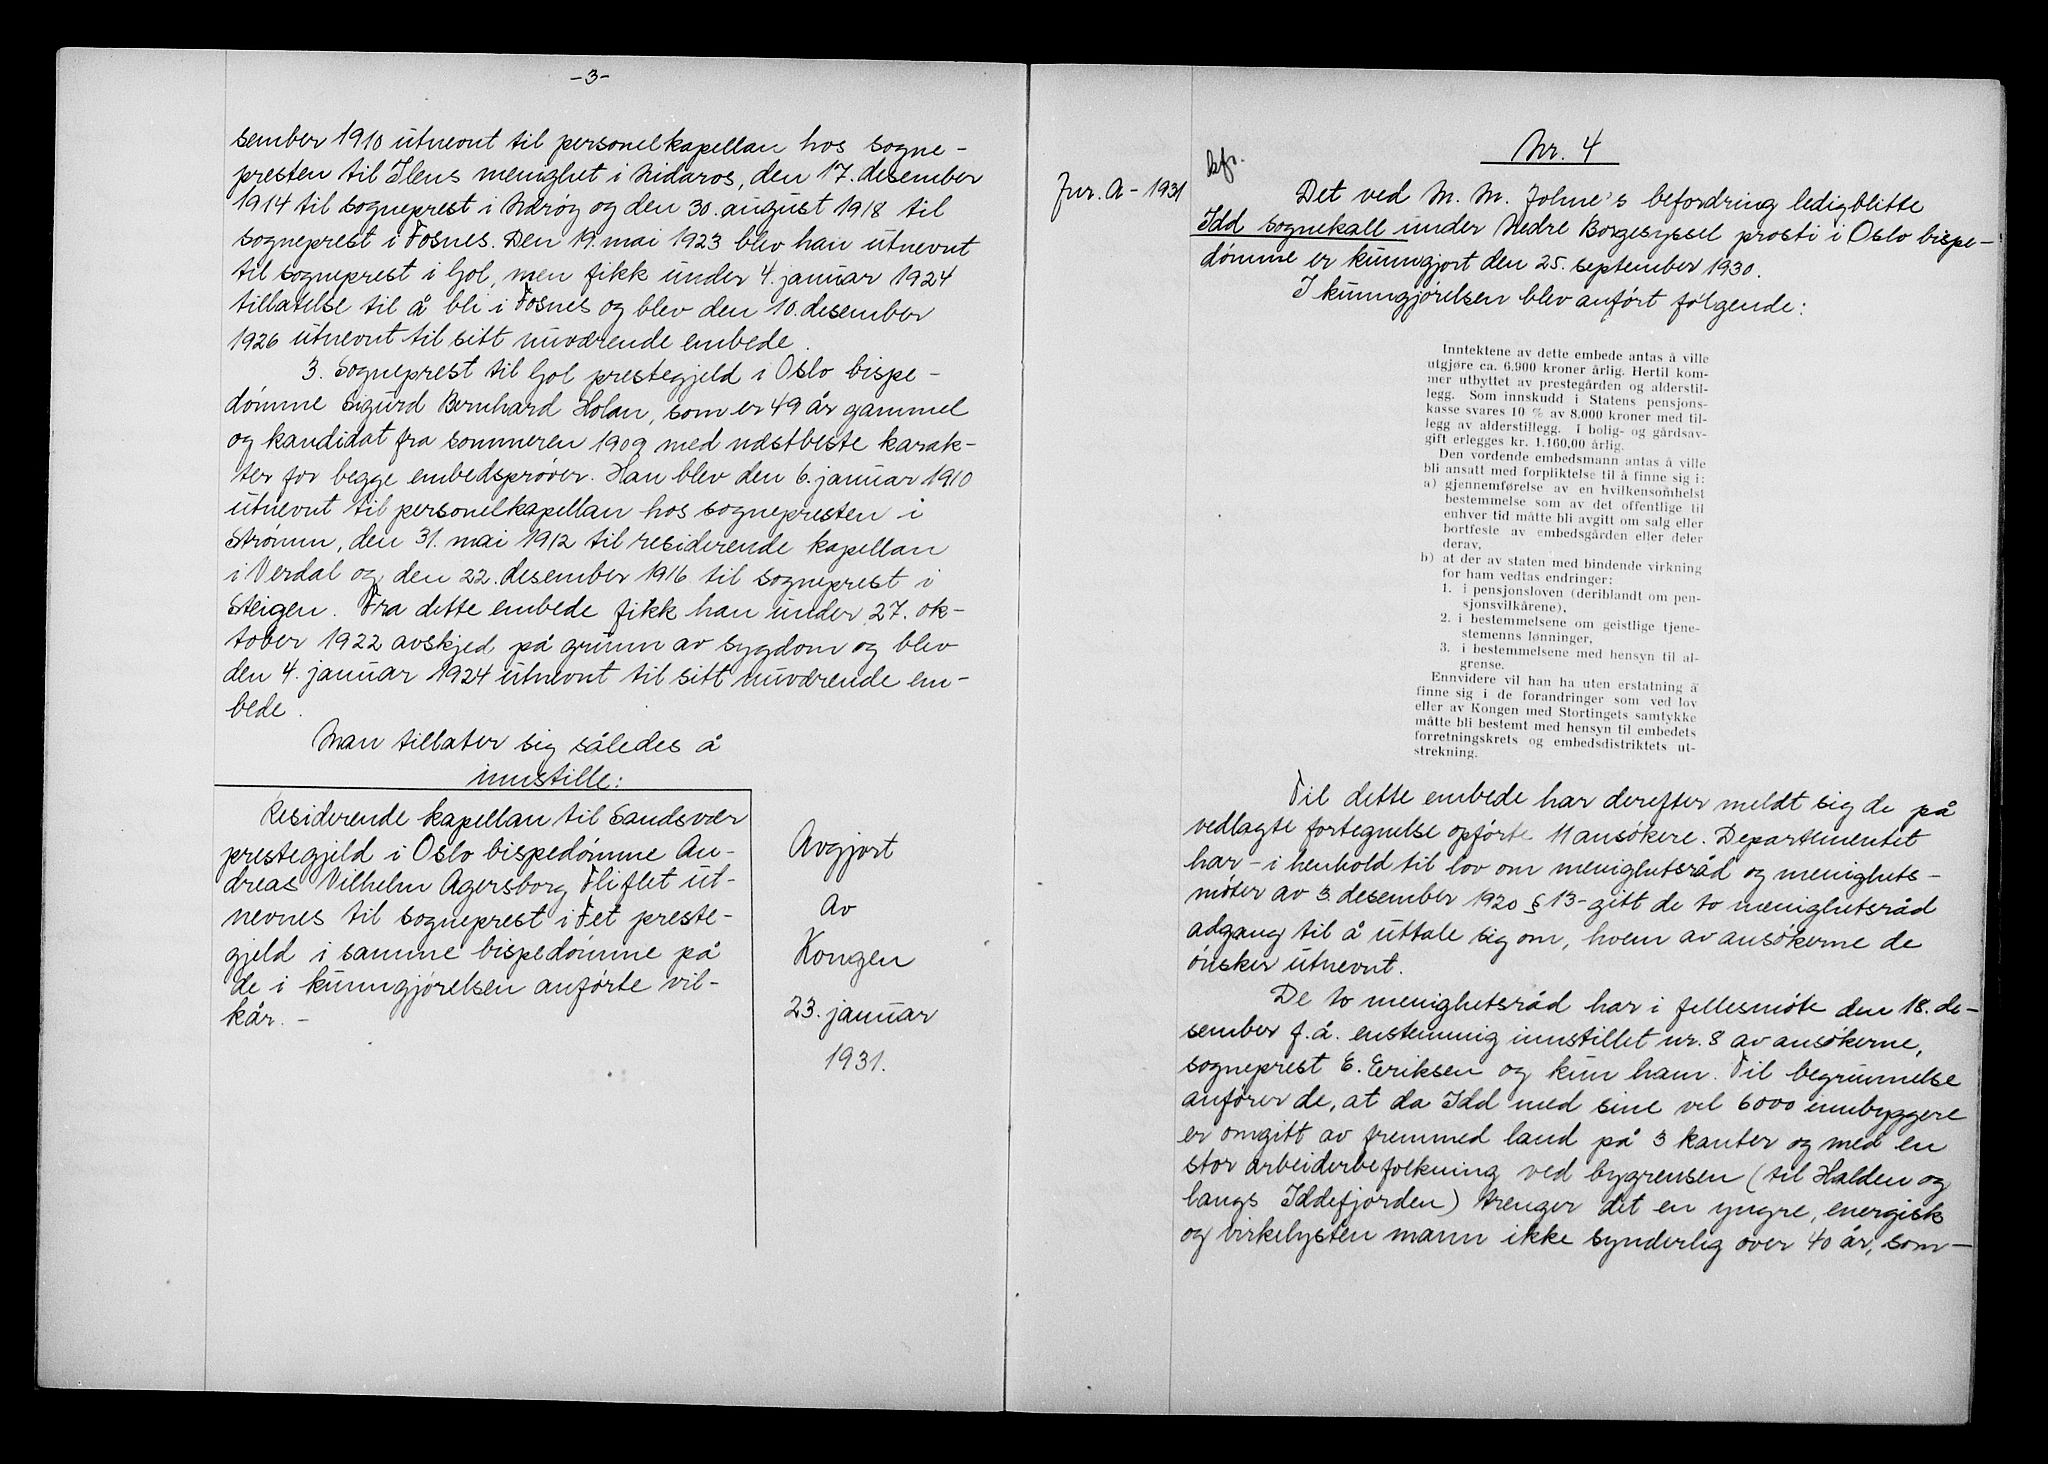 -3-
sember 1910 utnevnt til personelkapellan hos sogne-
presten til Ilens menighet i Nidaros, den 17. desember
1914 til sogneprest i Nærøy og den 30. august 1918 til
sogneprest i Fosnes. Den 19. mai 1923 blev han utnevnt
til sogneprest i Gol, men fikk under 4. januar 1924
tillatelse til å bli i Fosnes og blev den 10. desember
1926 utnevnt til sitt nuværende embede.
3. Sogneprest til Gol prestegjeld i Oslo bispe-
dømme Sigurd Bernhard Holan, som er 49 år gammel
og kandidat fra sommeren 1909 med næstbeste karak-
ter for begge embedsprøver. Han blev den 6. januar 1910
utnevnt til personelkapellan hos sognepresten i
Strømm, den 31. mai 1912 til residerende kapellan
i Verdal og den 22. desember 1916 til sogneprest i
Steigen. Fra dette embede fikk han under 27. ok-
tober 1922 avskjed på grunn av sygdom og blev
den 4. januar 1924 utnevnt til sitt nuværende em-
bede.
Man tillater sig således å
innstille:
Residerende kapellan til Sandsvær
prestegjeld i Oslo bispedømme An-
dreas Vilhelm Agersborg Fliflet ut-
nevnes til sogneprest i Fet preste-
gjeld i samme bispedømme på
de i kunngjørelsen anførte vil-
kår. -
Avgjort
av
Kongen
23. januar
1931.
Nr. 4
kfr.
Jnr. A - 1931
Det ved M. M. Johne's befordring ledigblitte
Idd sognekall under Nedre Borgesyssel prosti i Oslo bispe-
dømme er kunngjort den 25. september 1930.
I kunngjørelsen blev anført følgende:
Inntektene av dette embede antas å ville
utgjøre ca. 6.900 kroner årlig. Hertil kom-
mer utbyttet av prestegården og alderstil-
legg. Som innskudd i Statens pensjons-
kasse svares 10 % av 8.000 kroner med til-
legg av alderstillegg. I bolig- og gårdsav-
gift erlegges kr. 1.160,00 årlig.
Den vordende embedsmann antas å ville
bli ansatt med forpliktelse til å finne sig i:
a) gjennemførelse av en hvilkensomhelst
bestemmelse som av det offentlige til
enhver tid måtte bli avgitt om salg eller
bortfeste av embedsgården eller deler
derav,
b) at der av staten med bindende virkning
for ham vedtas endringer:
1. i pensjonsloven (deriblandt om pen-
sjonsvilkårene),
2. i bestemmelsene om geistlige tjene-
stemenns lønninger,
3. i bestemmelsene med hensyn til al-
grense.
Ennvidere vil han ha uten erstatning å
finne sig i de forandringer som ved lov
eller av Kongen med Stortingets samtykke
måtte bli bestemt med hensyn til embedets
forretningskrets og embedsdistriktets ut-
strekning.
Til dette embede har derefter meldt sig de på
vedlagte fortegnelse opførte 11 ansøkere. Departementet
har - i henhold til lov om menighetsråd og menighets-
møter av 3. desember 1920 § 13 - gitt de to menighetsråd
adgang til å uttale sig om, hvem av ansøkerne de
ønsker utnevnt.
De to menighetsråd har i fellesmøte den 18. de-
sember f. å. enstemmig innstillet nr. 8 av ansøkerne,
sogneprest E. Eriksen og kun ham. Til begrunnelse
anfører de, at da Idd med sine vel 6000 innbyggere
er omgitt av fremmed land på 3 kanter og med en
stor arbeiderbefolkning ved bygrensen (til Halden og
langs Iddefjorden) trenger det en yngre, energisk
og virkelysten mann ikke synderlig over 40 år, som -